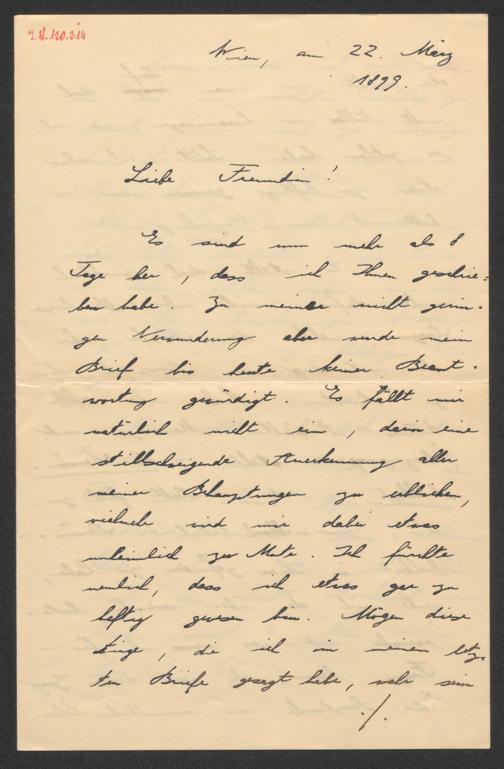 I.N.120.214
Wien, am 22. März
1899.
Liebe Freundin!
Es sind nun mehr als 8
Tage her, dass ich Ihnen geschrie=
ben habe. Zu meiner nicht gerin-
gen Verwunderung aber wurde mein
Brief bis heute keiner Beant-
wortung gewürdigt. Es fällt mir
natürlich nicht ein, darin eine
stillschweigende Anerkennung aller
meiner Behauptungen zu erblicken,
vielmehr wird mir dabei etwas
unheimlich zu Mute. Ich fürchte
nemlich, dass ich etwas gar zu
heftig gewesen bin. Mögen diese
Dinge, die ich in meinem letz-
ten Briefe gesagt habe, wahr sein
./.